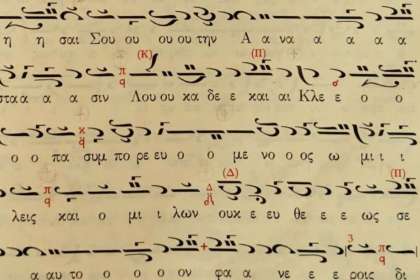 η η σαι Σου ου ου την Α α να α α α α
στα α α α σιν Λου ου κα δε ε και αι Κλε ε ο ο
ο ο πα συμ πο ρε ευ ο ο με νο ο ος ω μι ι ι
λεις και ο μι ι λων ουκ ε ευ θε ε ε ως σε
ε αυ το ο ο ο ον φα α νε ε ε ροις δι